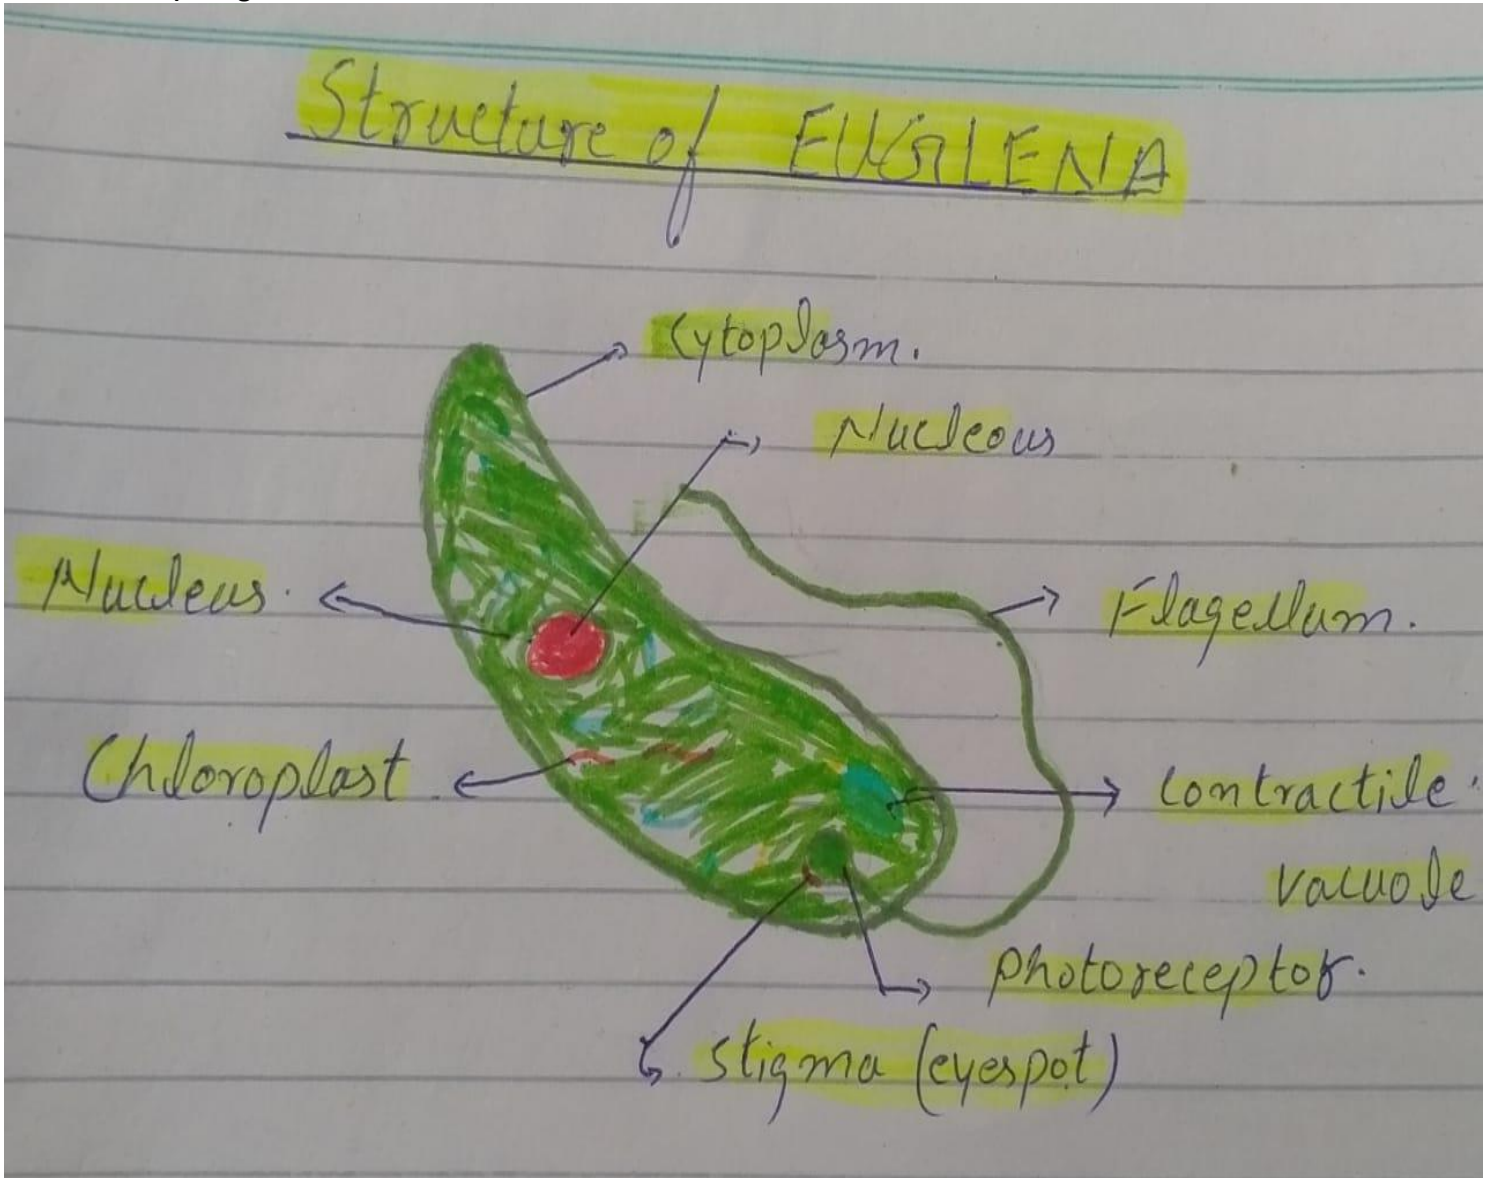 Structure of EUGLENA
Cytoplasm.
Nucleous
Nucleus.
Flagellum.
Chloroplast.
Contractile
vacuole
Photoreceptor.
Stigma (eyespot)